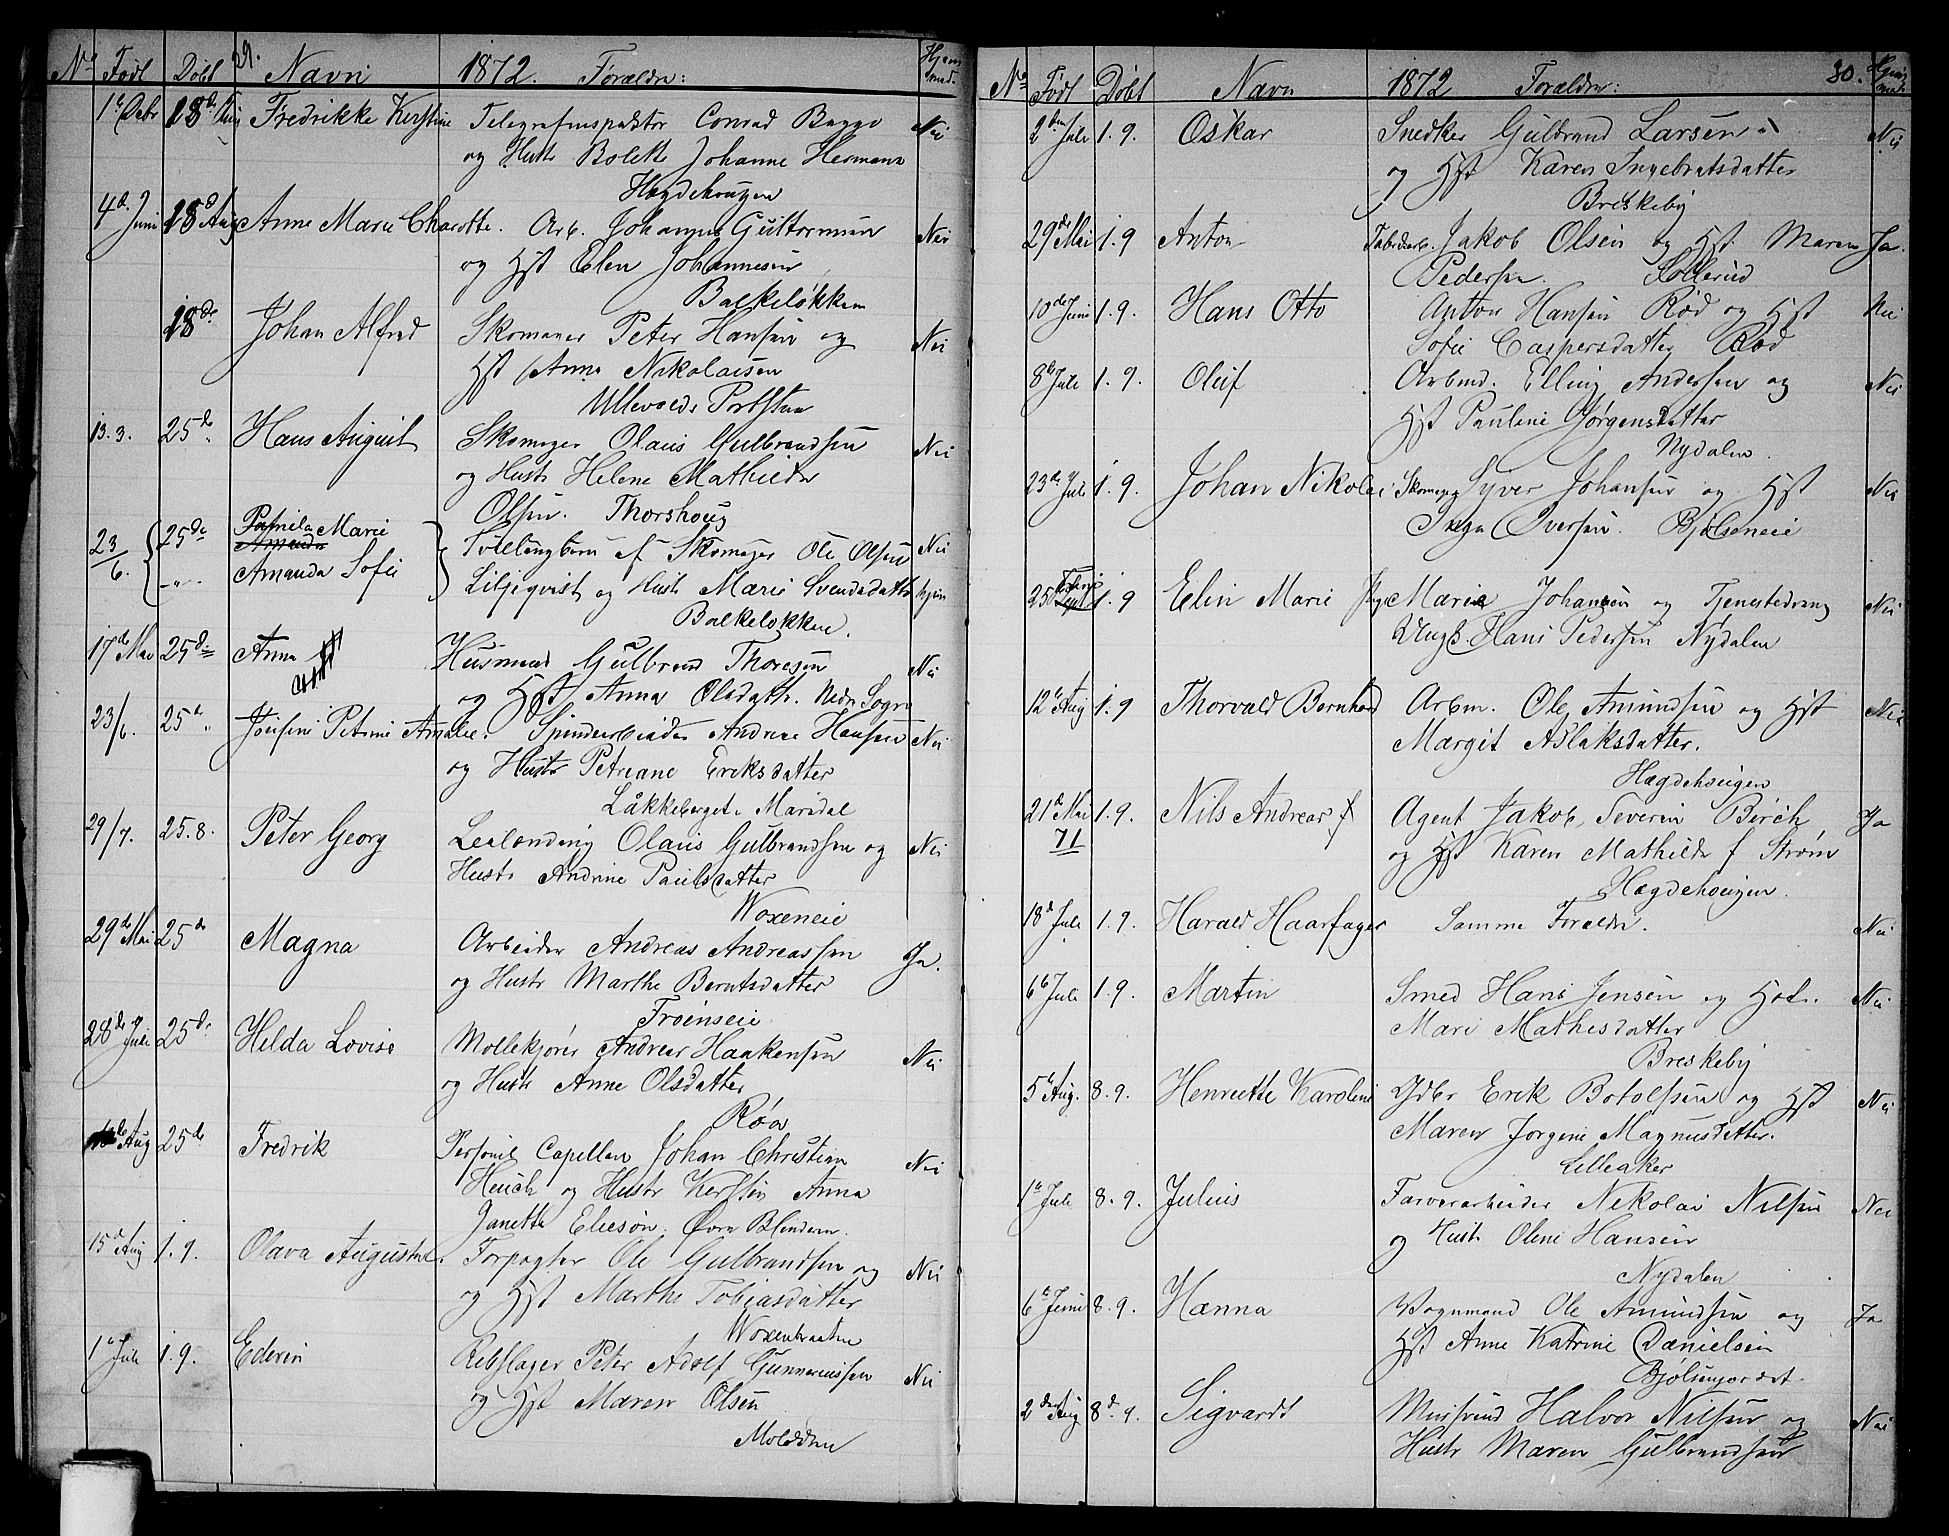 No Født Døbt 29. Navn 1872. Forældre: Hjemmed.
1ste Debr 18de Aug Fredrikke Kirstine Telegrafinspektør Conrad Nei
og Hustr Bolette Johanne Hermana
Hægdehaugen
4de Juni 18de Aug Anne Marie Charlotte. Arb. Johannes Guttormsen Nei
og Hst Elen Johannesen
Balkeløkken
18de Johan Alfred Skomager Peter Hansen og Nei
Hst Anna Nikolaisen
Ullevolds Portstue
13.3. 25de Hans August Skomager Olaus Gulbrandsen Nei
og Hustr Helene Mathilde
Olsen. Thorshoug
23/6. 25de Pamila Marie Tvillingbørn af Skomager Ole Olsen Nei
-"- Amanda Sofie Liljeqvist og Hustr Marie Svendsdatter
Balkeløkken.
17de Mai 25de Anna Husmand Gulbrand Thoresen Nei
og Hst Anna Olsdattr. Nedr Sogn
23/6. 25de Petrine Amalie. Spinderarbeider Andreas Hansen Nei
og Hustr Petriane Eriksdatter
Låkkeberget i Maridal
29/7. 25.8. Peter Georg Leilending Olaus Gulbrandsen og Nei
Hustr Andrine Paulsdatter
Woxeneie
29de Mai 25de Magna Arbeider Andreas Andreassen Ja.
og Hustr Marthe Berntsdatter
Frøenseie
28de Juli 25de Helda Lovise Møllekjører Andreas Haakensen Nei
og Hustr Anne Olsdatter
Røa
Aug 25de Fredrik Personel Capellan Johan Christian Nei
Heuch og Hustr Kerstin Anna
Janette Eliesøn. Øvre Blindern.
15de Aug 1.9. Olava Augusta. Forpagter Ole Gulbrandsen og Nei
og Hst Marthe Tobiasdatter
Woxenbraaten
1ste Juli 1.9. Ederin Rebslager Peter Adolf Gunneriussen Nei
og Hst Maren Olsen
No Født Døbt Navn 1872 Forældre: 30.
2den Juli 1.9. Oskar Snedker Gulbrand Larsen Nei
og Hst Karen Ingebretsdatter
Breskeby
29de Mai 1.9 Anton Fabrikarb. Jakob Olsen og Hst Maren Ja.
Pedersen. Sollerud
10de Juni 1.9. Hans Otto Anton Hansen Rød og Hst Nei
Sofie Caspersdatter Rød
8de Juli 1.9. Oluf Arbmd. Elling Andersen og Nei
Hst Pauline Jørgensdatter
Nydalen.
23de Juli 1.9. Johan Nikolai Skomager Syver Johansen og Hst Nei
Inga Iversen. Bjølseneie
25 1.9 Elin Marie Pige Marie Johansen og Tjenestedreng Nei
Ungk. Hans Pedersen Nydalen
12te Aug 1.9 Thorvald Bernhard Arbm. Ole Amundsen og Hst Nei
Margit Aslaksdatter.
Hægdehougen
21de Mai 1.9. Nils Andreas f Agent Jakob Severin Birch Ja
71 og Hst Karen Mathilde f Strøm
Hægdehougen.
18de Juli 1.9. Harald Haarfager Samme Forældre. Nei
6te Juli 1.9. Martin Smed Hans Jensen og Hst. Nei
Mari Mathisdatter
Breskeby
5te Aug. 8.9. Henriette Karoline Idbr Erik Botolfsen og Hst Nei
Maren Jørgine Magnusdatter.
Lilleaker
1ste Juli 8.9. Julius Farverarbeider Nikolai Nilsen Nei
og Hustr Oline Hansen
Nydalen
6te Juni 8.9. Hanna Vognmand Ole Amundsen og Ja
Hst Anne Katrine Danielsen
Bjølsenjordet.
2den Aug 8de 9. Sigvardt Mursvend Halvor Nilsen og Nei
Hustr Maren Gulbrandsen